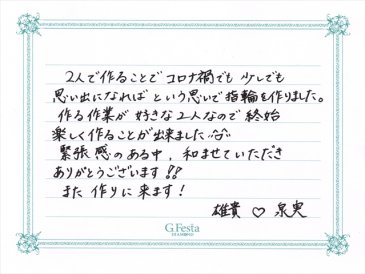 2人で作ることでコロナ禍でも少しでも
思い出になればという思いで指輪を作りました。
作る作業が好きな2人なので終始
楽しく作ることが出来ました
緊張感のある中、和ませていただき
ありがとうございます!!
また作りに来ます!
雄貴 ♡ 泉実
G.Festa
DIAMOND